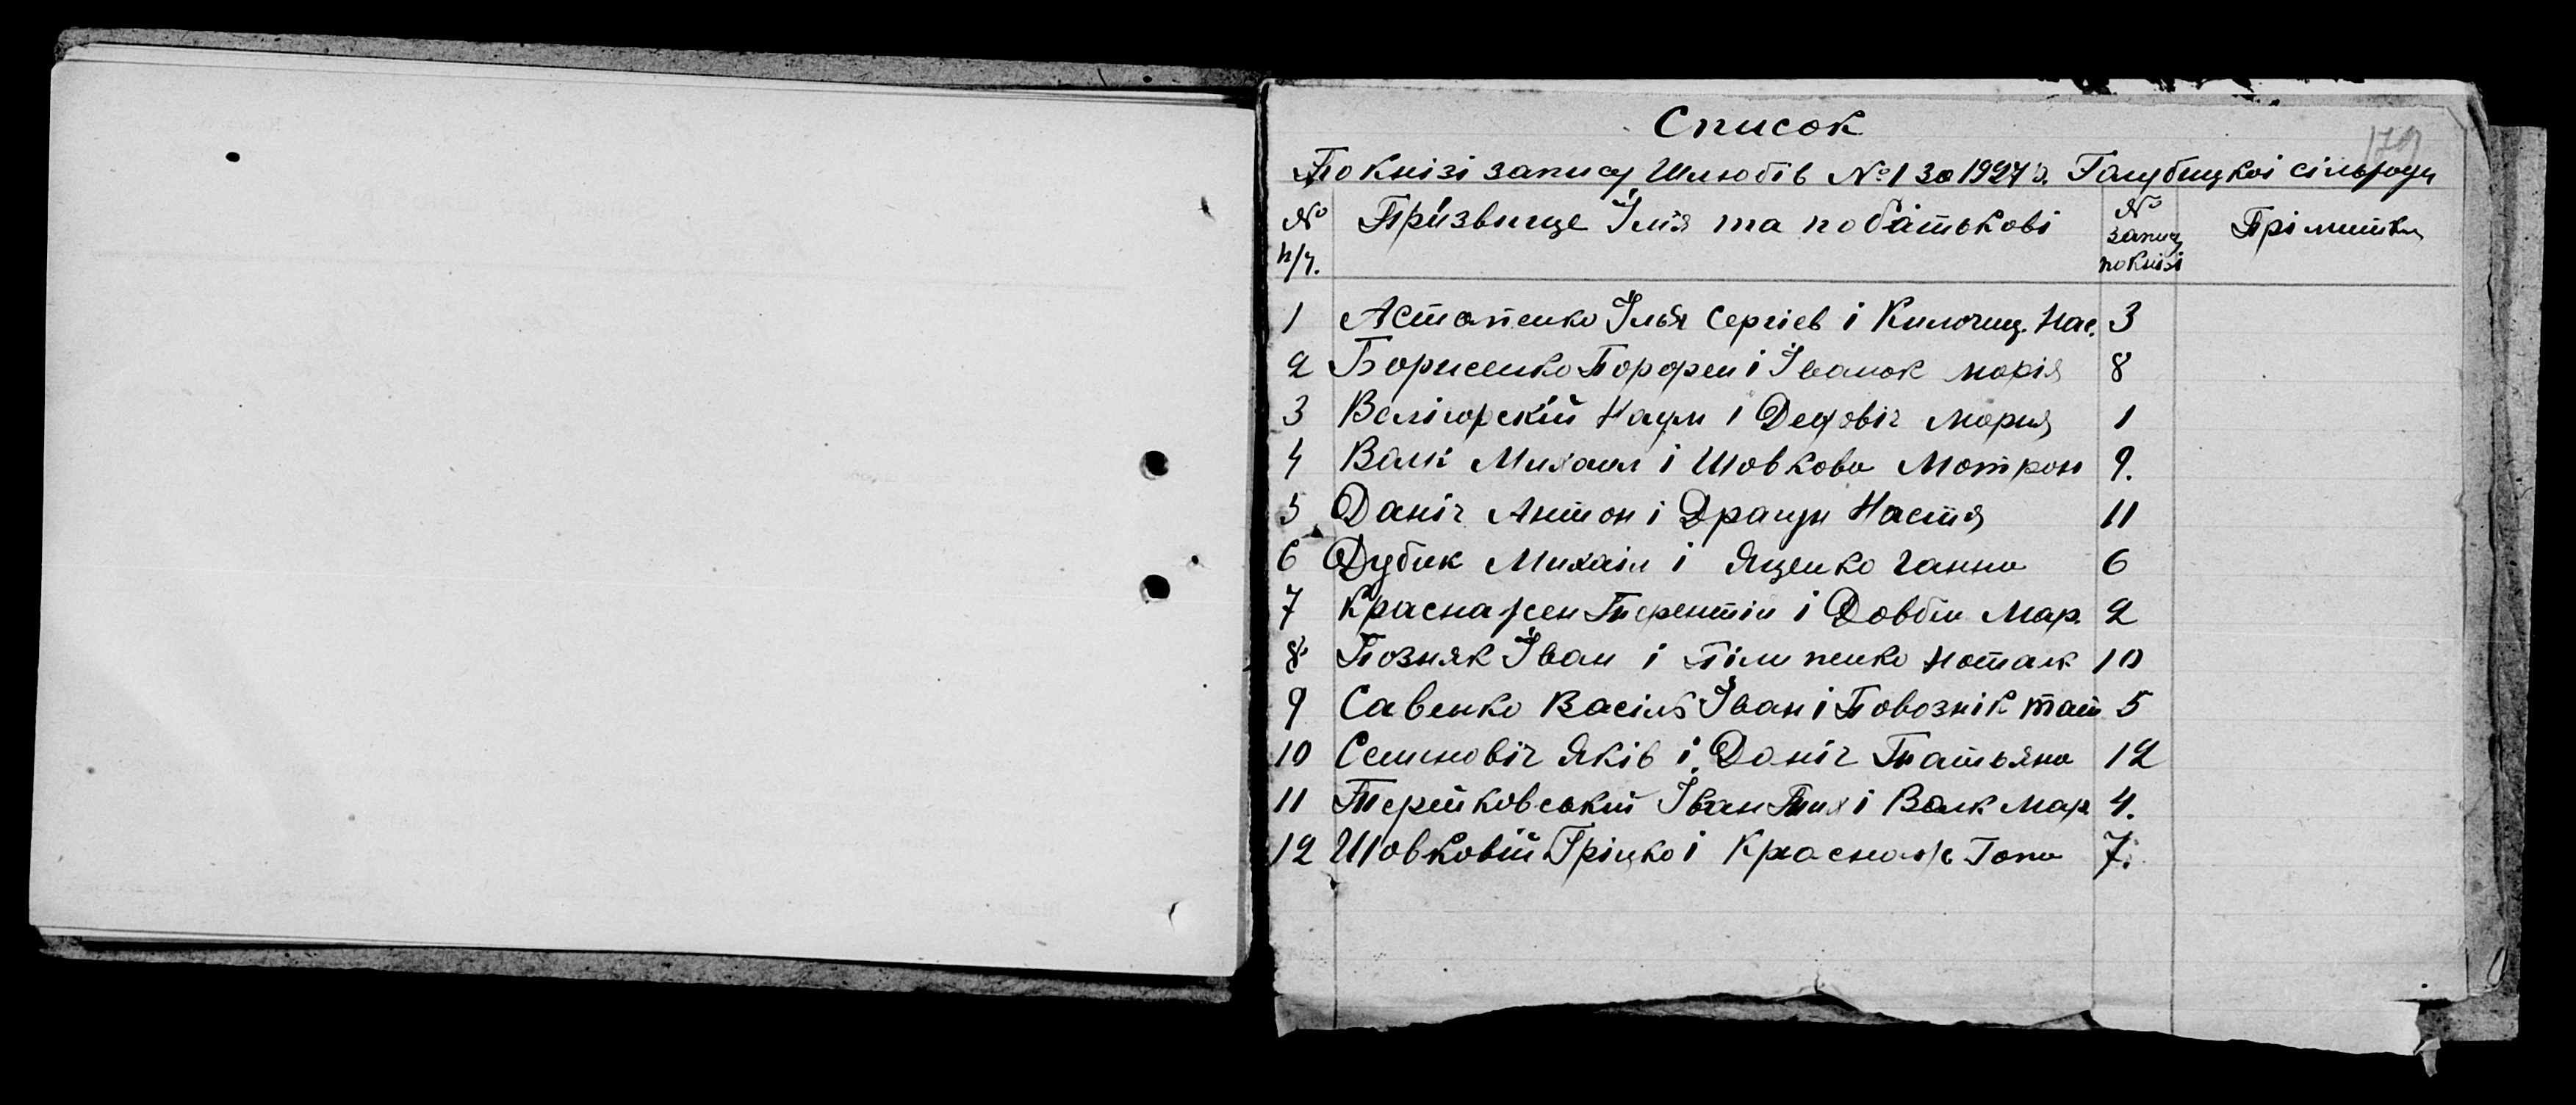 Список
179
По книзі запису Шлюбів №1 за 1927 р. Голубицкоі сільради
№ п/ч. Прізвище Імя та побатькові № запису по книзі Прімитки
1 Астапенко Ілья Сергіев і Ключиц. Нас. 3
2 Борисенко Порфем і Іванок Марія 8
3 Велігорскій Наум і Дедовіч Мария 1
4 Валк Михаил і Шовкова Мотрон 9.
5 Даніч Антон і Драгун Настя 11
6 Дубик Михаіл і Яценко Ганна 6
7 Краснажен Терентій і Довбиш Мар. 2
8 Позняк Іван і Піліпенко Наталк 10
9 Савенко Васіль Іван і Повознік тат 5
10 Семеновіч Яків і Даніч Татьяна 12
11 Терейковський Іван Тих і Валк Мар 4.
12 Шовковій Гріцко і Краснаж Гапа 7.